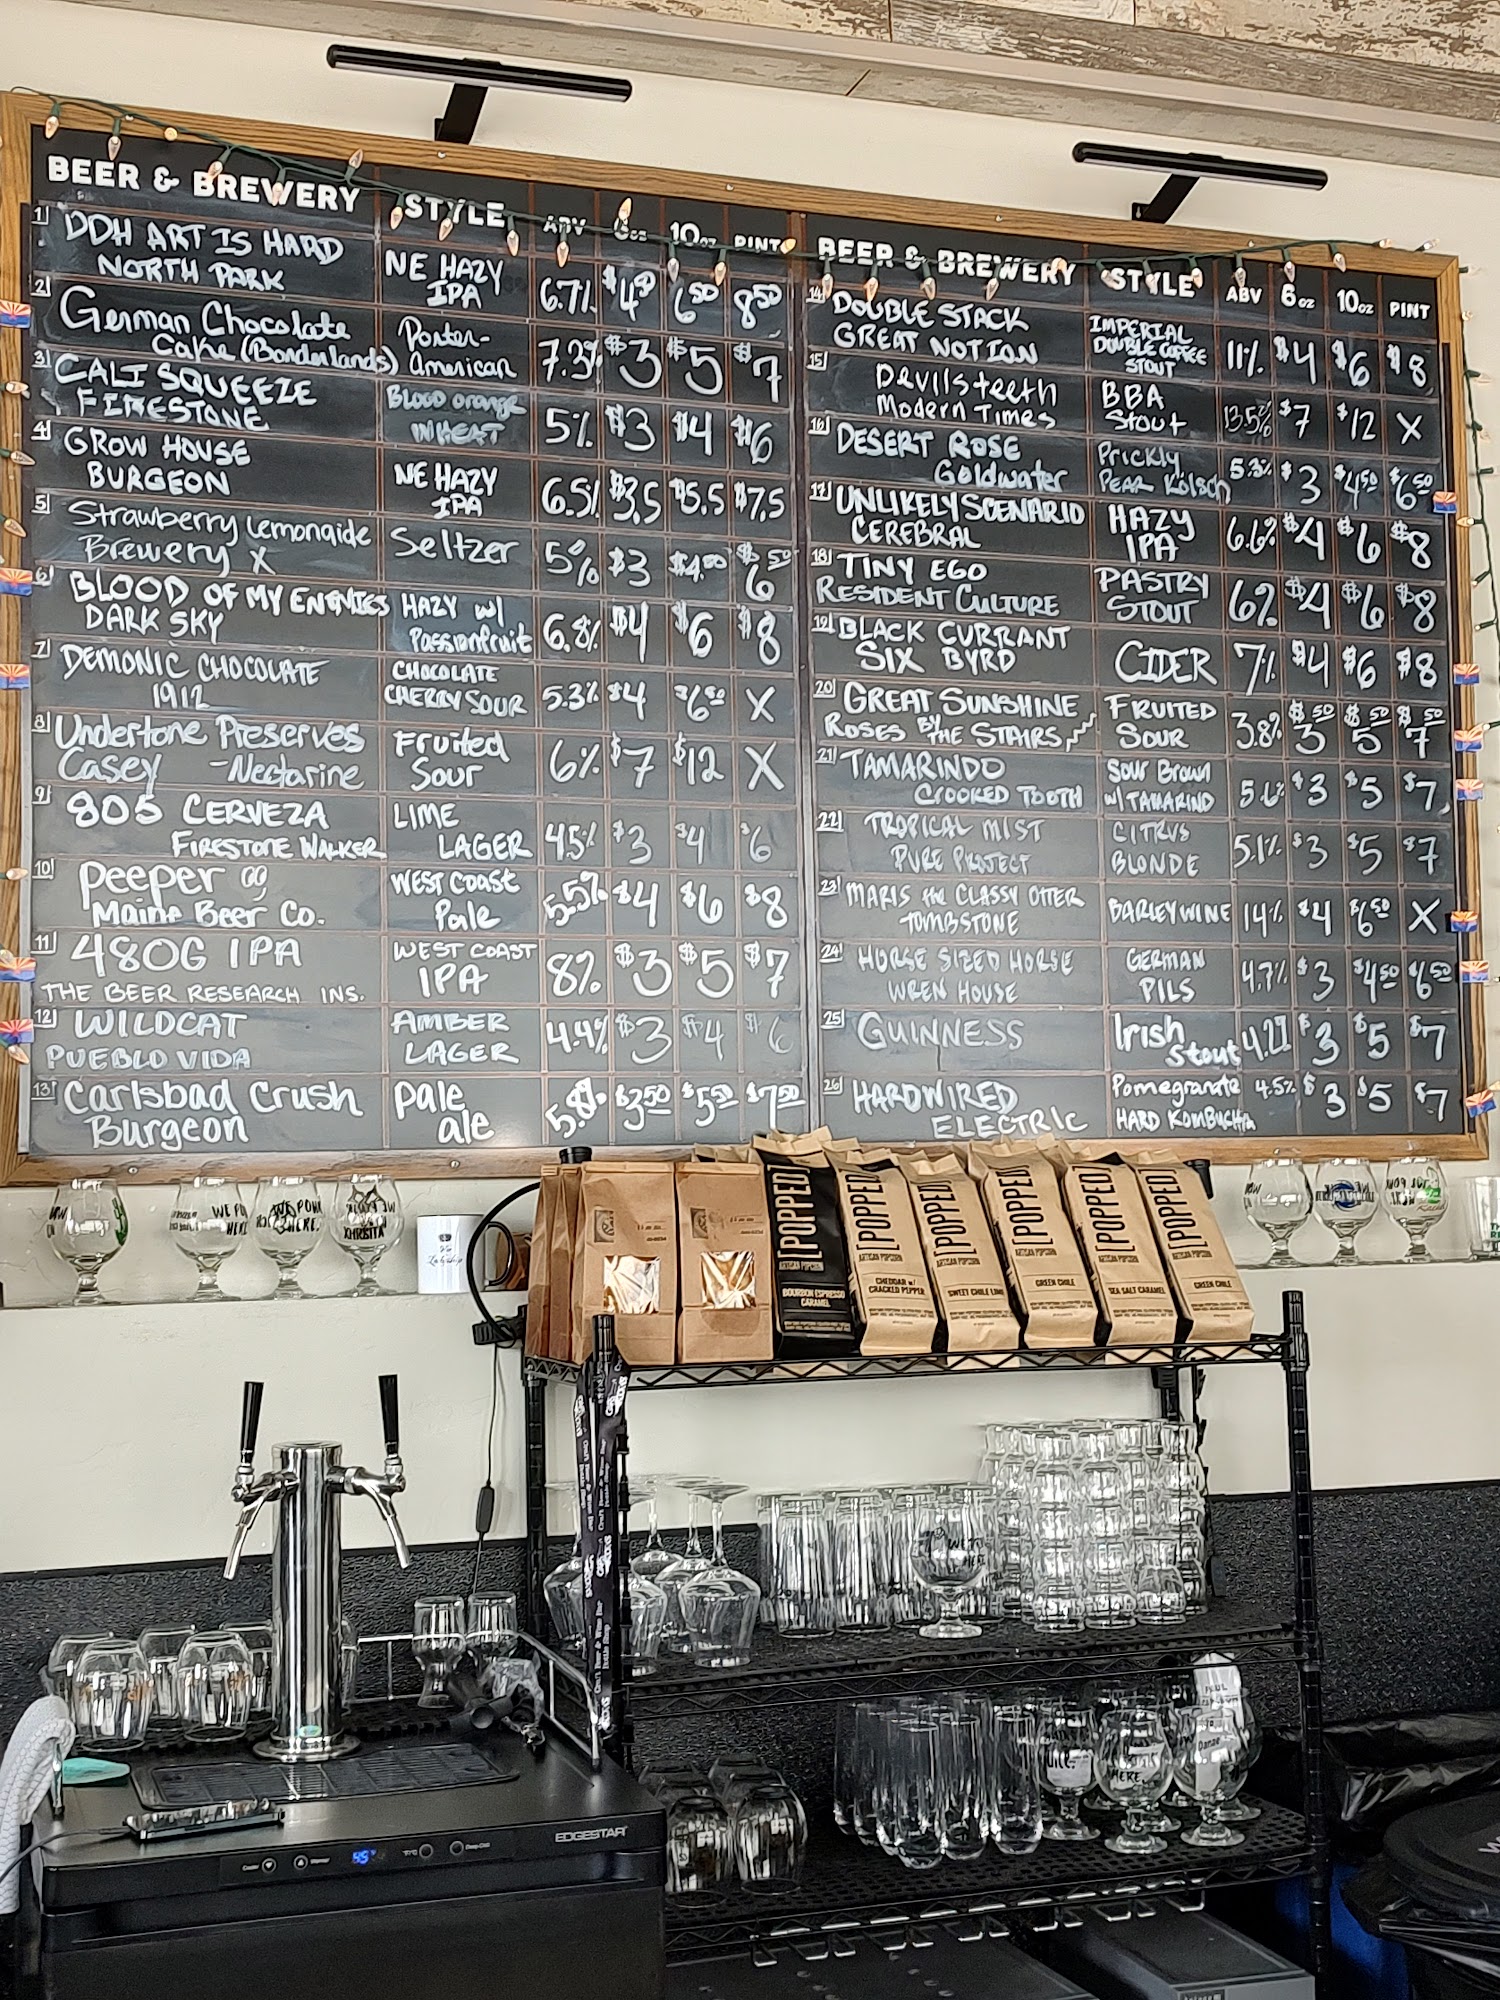 BEER & BREWERY STYLE ABV 6oz 10oz PINT
1 DDH ART IS HARD
NORTH PARK
NE HAZY
IPA
6.7% $4.50 6.50 8.50
2 German Chocolate
Cake (Borderlands)
Porter-
American
7.3% $3 $5 $7
3 CALI SQUEEZE
FIRESTONE
Blood orange
WHEAT
5% $3 $4 $6
4 GROW HOUSE
BURGEON
NE HAZY
IPA
6.5% $3.5 $5.5 $7.5
5 Strawberry Lemonaide
Brewery X
Seltzer
5% $3 $4.50 $6.50
6 BLOOD OF MY ENEMIES
DARK SKY
HAZY w/
Passionfruit
6.8% $4 $6 $8
7 DEMONIC CHOCOLATE
1912
CHOCOLATE
CHERRY SOUR
5.3% $4 $6.50 X
8 Undertone Preserves
Casey -Nectarine
Fruited
Sour
6% $7 $12 X
9 805 CERVEZA
FIRESTONE WALKER
LIME
LAGER
4.5% $3 $4 $6
10 Peeper
Maine Beer Co.
WEST COAST
Pale
5.5% $4 $6 $8
11 480G IPA
THE BEER RESEARCH INS.
WEST COAST
IPA
8% $3 $5 $7
12 WILDCAT
PUEBLO VIDA
AMBER
LAGER
4.4% $3 $4 $6
13 Carlsbad Crush
Burgeon
Pale
ale
5.8% $3.50 $5.50 $7.50
BEER & BREWERY STYLE ABV 6oz 10oz PINT
14 DOUBLE STACK
GREAT NOTION
IMPERIAL
DOUBLE COFFEE
STOUT
11% $4 $6 $8
15 Devilsteeth
Modern Times
BBA
Stout
13.5% $7 $12 X
16 DESERT ROSE
Goldwater
Prickly
PEAR Kolsch
5.3% $3 $4.50 $6.50
17 UNLIKELY SCENARIO
CEREBRAL
HAZY
IPA
6.6% $4 $6 $8
18 TINY EGO
RESIDENT CULTURE
PASTRY
STOUT
6% $4 $6 $8
19 BLACK CURRANT
SIX BYRD
CIDER
7% $4 $6 $8
20 GREAT SUNSHINE
ROSES BY THE STAIRS
FRUITED
SOUR
3.8% $3.50 $5.50 $7.50
21 TAMARINDO
CROOKED TOOTH
Sour Brown
w/TAMARIND
5.6% $3 $5 $7
22 TROPICAL MIST
PURE PROJECT
CITRUS
BLONDE
5.1% $3 $5 $7
23 MARIS the CLASSY OTTER
TOMBSTONE
BARLEYWINE
14% $4 $6.50 X
24 HORSE SIZED HORSE
WREN HOUSE
GERMAN
PILS
4.7% $3 $4.50 $6.50
25 GUINNESS
Irish
Stout
$3 $5 $7
26 HARDWIRED
ELECTRIC
Pomegranate
HARD KOMBUCHA
4.5% $3 $5 $7
[POPPED]
ARTISAN POPCORN
BOURBON ESPRESSO
CARAMEL
[POPPED]
ARTISAN POPCORN
CHEDDAR w/
CRACKED PEPPER
[POPPED]
ARTISAN POPCORN
SWEET CHILE LIME
[POPPED]
ARTISAN POPCORN
GREEN CHILE
[POPPED]
ARTISAN POPCORN
SEA SALT CARAMEL
[POPPED]
ARTISAN POPCORN
GREEN CHILE
WE POUR
HERE.
EDGESTAR
45°